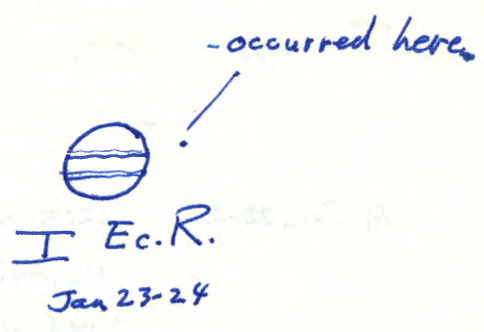 -occurred here.
I Ec.R.
Jan 23-24